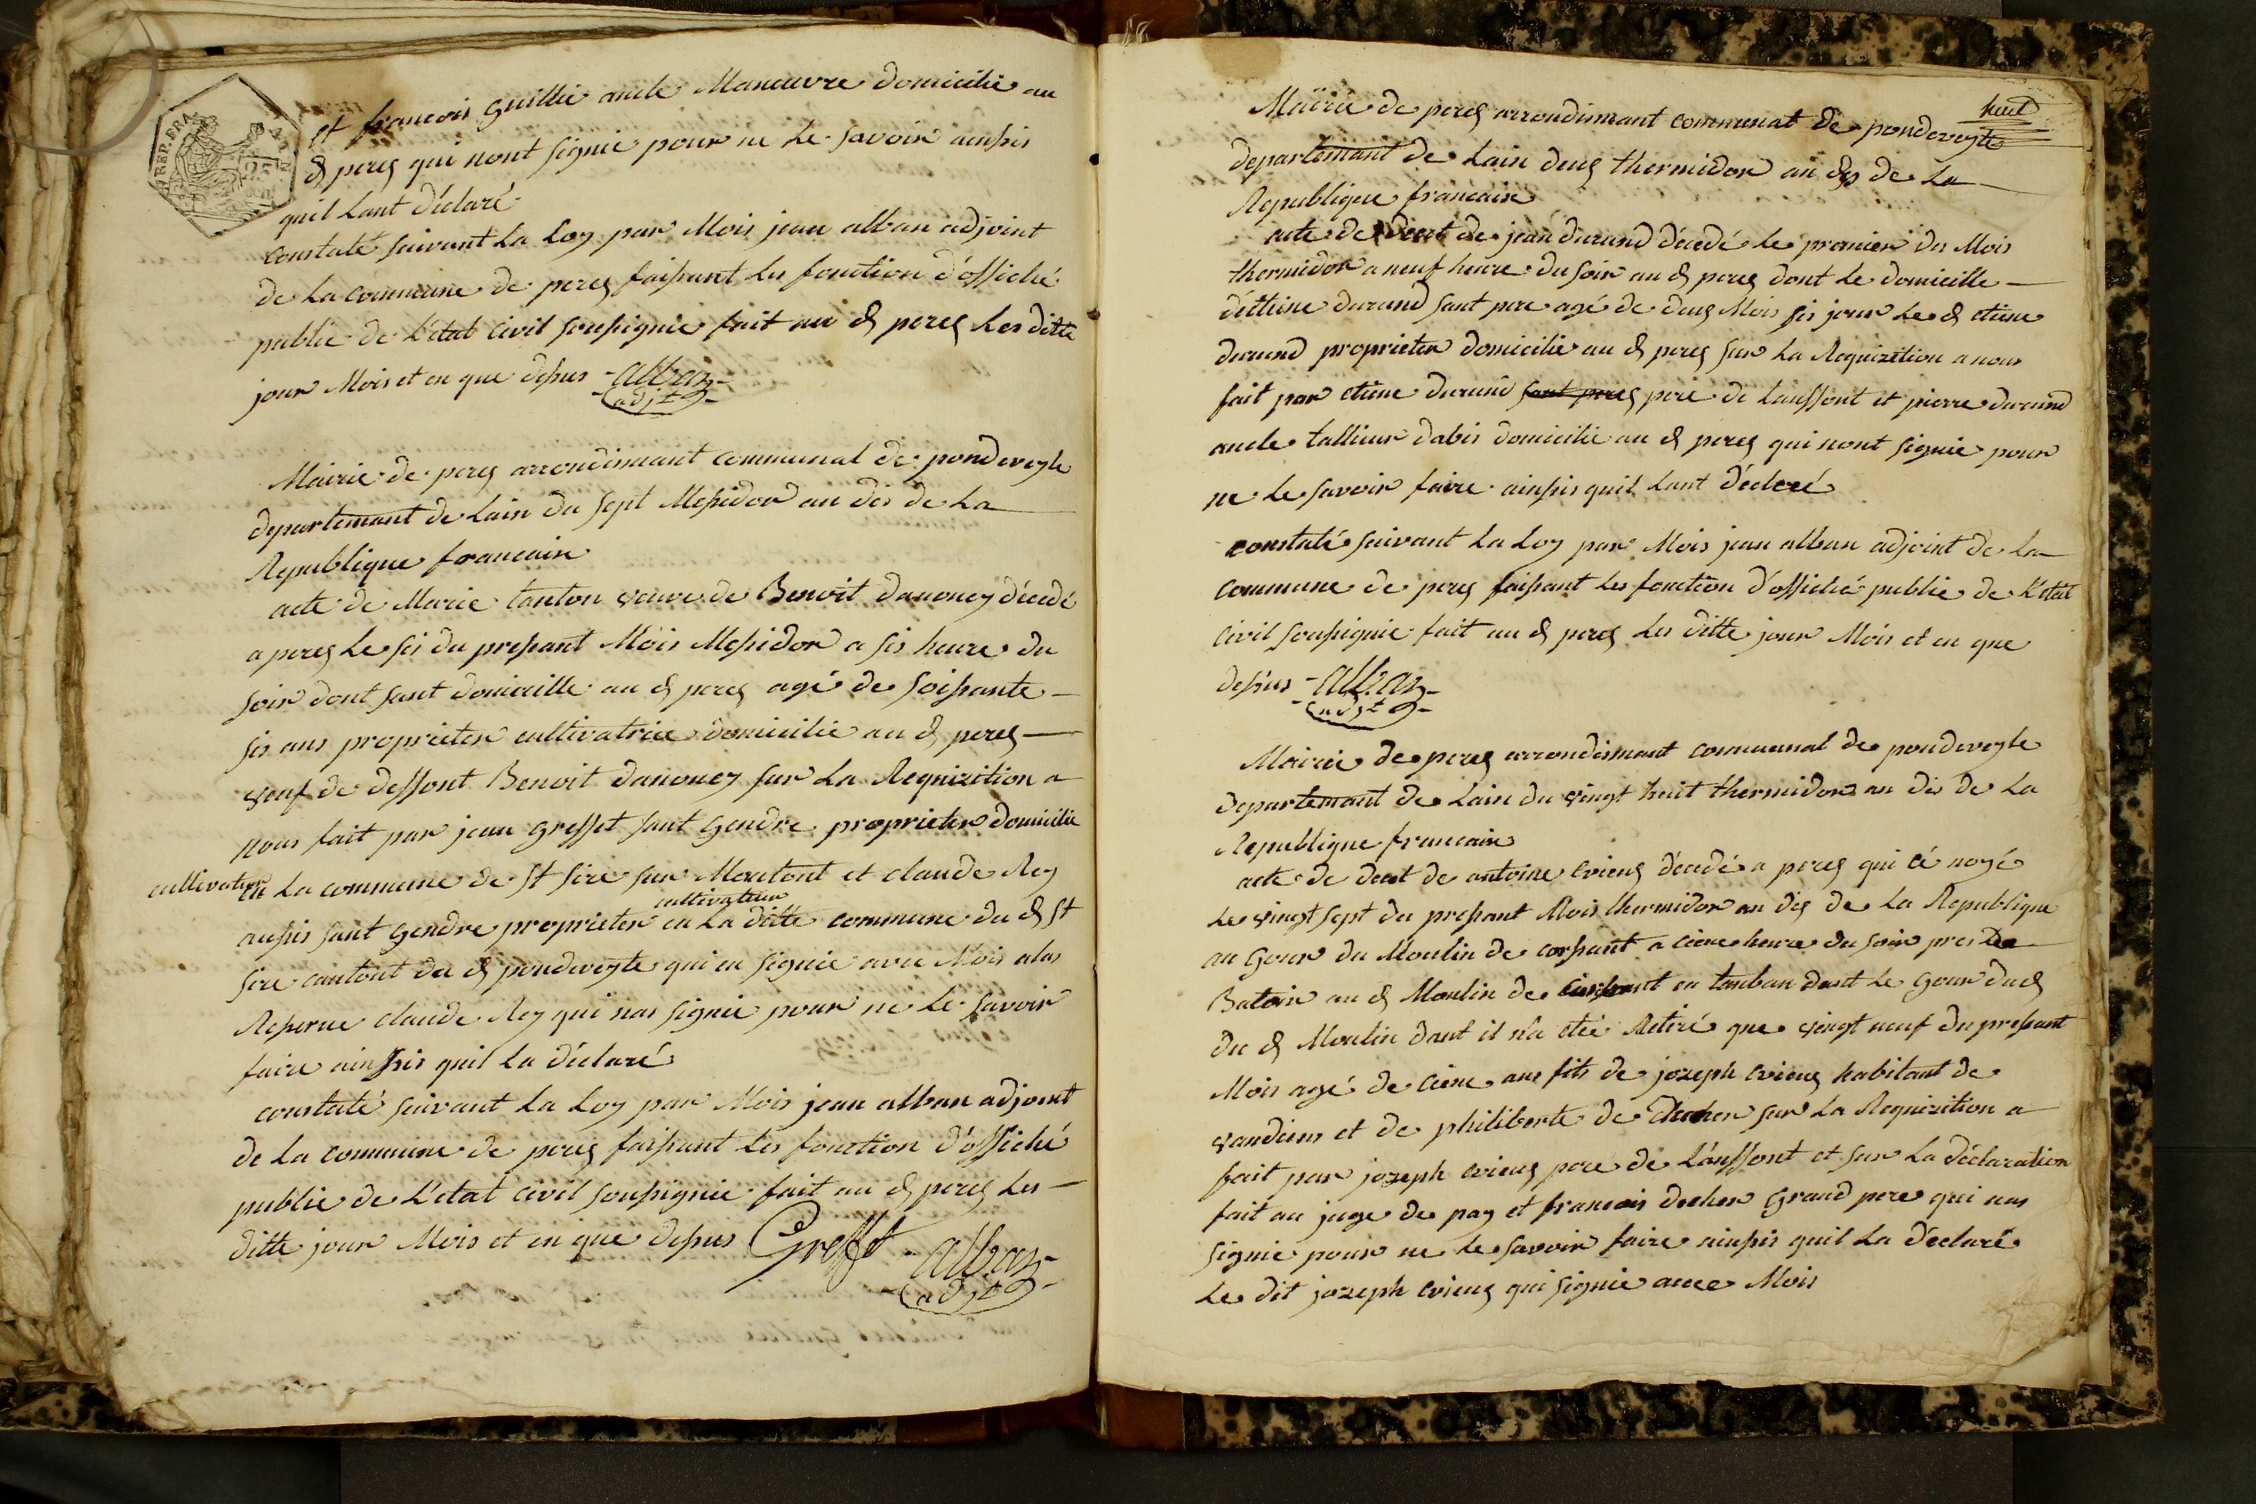 REP. FRA.
25
et francois Guillie oncle Maneuvre domicilié au
d perex qui nont signié pour ne le savoir ainssis
quil lant déclaré
constaté suivant La Loy par Mois jean alban adjoint
de La commune de perex faissant les fonction d'officié
public de L'etat civil soussignie fait au d perex Les ditte
jour Mois et en que dessus - alban -
adjt
Mairie de perex arrondismant communal de pondeveyle
departemant de Lain du sept Messidor an dis de La
Republique francaise
acte de Marie tanton veuve de Benoit danoncy décedé
a perex Le sis du pressant Mois Messidor a sis heure du
soir dont sant domicille au d perex agé de soissante
sis ans proprieter cultivatrice domicilié au d perex
veuf de deffont Benoit danoncy sur La Requizition a
nous fait par jean Greffet sant Gendre proprieter domicilié
cultivateur en La commune de St Sire sur Montont et claude Rey
cultivateur
aussis sant Gendre proprieter en La ditte commune du d St
Sire cantont du d pondeveyle qui en signié avec Mois alas
Reserve claude Rey qui nas signié pour ne Le savoir
faire ainssis quil La déclaré
constaté suivant La Loy par Mois jean alban adjoint
de La commune de perex faissant Les fonction d'officié
public de L'etat civil soussignie fait au d perex Les
ditte jour Mois et en que dessus Greffet - alban -
adjt
huit
Mairie de perex arrondismant communal de pondeveyle
departemant de Lain deux thermidor an dis de La
Republique francaise
acte de deest de jean durand décedé Le premier du Mois
thermidor a neuf heure du soir au d perex dont Le domicille
d'ettiene durand sant pere agé de deux Mois sis jour Le d etiene
durand proprieter domicilié au d perex sur La Requizition a nous
fait par etiene durand sant perex pere de Lanffont et pierre durand
oncle tallieur dabis domicilié au d perex qui nont signié pour
ne Le savoir faire ainssis quil Lant déclaré
constaté suivant La Loy par Mois jean alban adjoint de La
commune de perex faissant Les fonction d'officié public de L'etat
civil soussignie fait au d perex Les ditte jour Mois et en que
dessus - alban -
adjt
Mairie de perex arrondismant communal de pondeveyle
departemant de Lain du vingt huit thermidor an dis de La
Republique francaise
acte de deest de antoine crieux décedé a perex qui cé noyé
Le vingt sept du pressant Mois thermidor an dis de La Republique
au Gour du Moulin de corssant a ciene heure du soir pres Le
Batoir au d Moulin de en tonban dant Le Gour dud
du d Moulin dont il n'a etée Retiré que vingt neuf du pressant
Mois agé de ciene ans fils de jozeph crieux habitant de
vandiens et de philiberte de sur La Requizition a
fait par jozeph crieux pere de Lanffont et sur La déclaration
fait au juge de pay et francois decher Grand pere qui nas
signié pour ne Le savoir faire ainssis quil La déclaré
Le dit jozeph crieux qui signie avec Mois